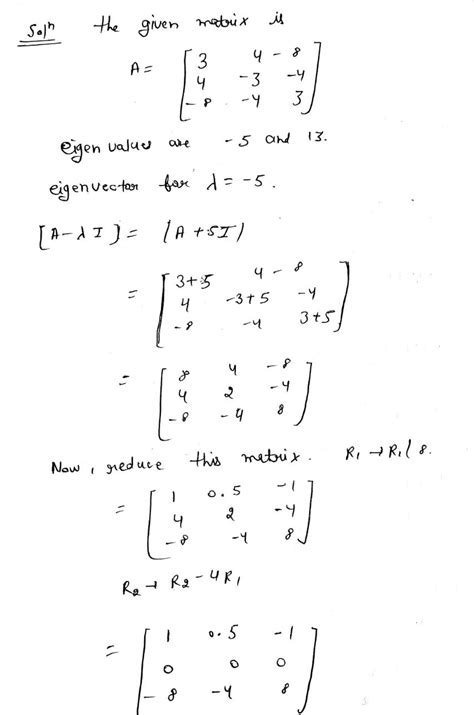 Solⁿ the given matrix is
A = [ 3 4 -8
4 -3 -4
-8 -4 3 ]
eigen values are -5 and 13.
eigenvector for λ = -5.
[A-λI] = (A+5I)
= [ 3+5 4 -8
4 -3+5 -4
-8 -4 3+5 ]
= [ 8 4 -8
4 2 -4
-8 -4 8 ]
Now, reduce this matrix. R₁ → R₁/8.
= [ 1 0.5 -1
4 2 -4
-8 -4 8 ]
R₂ → R₂-4R₁
= [ 1 0.5 -1
0 0 0
-8 -4 8 ]